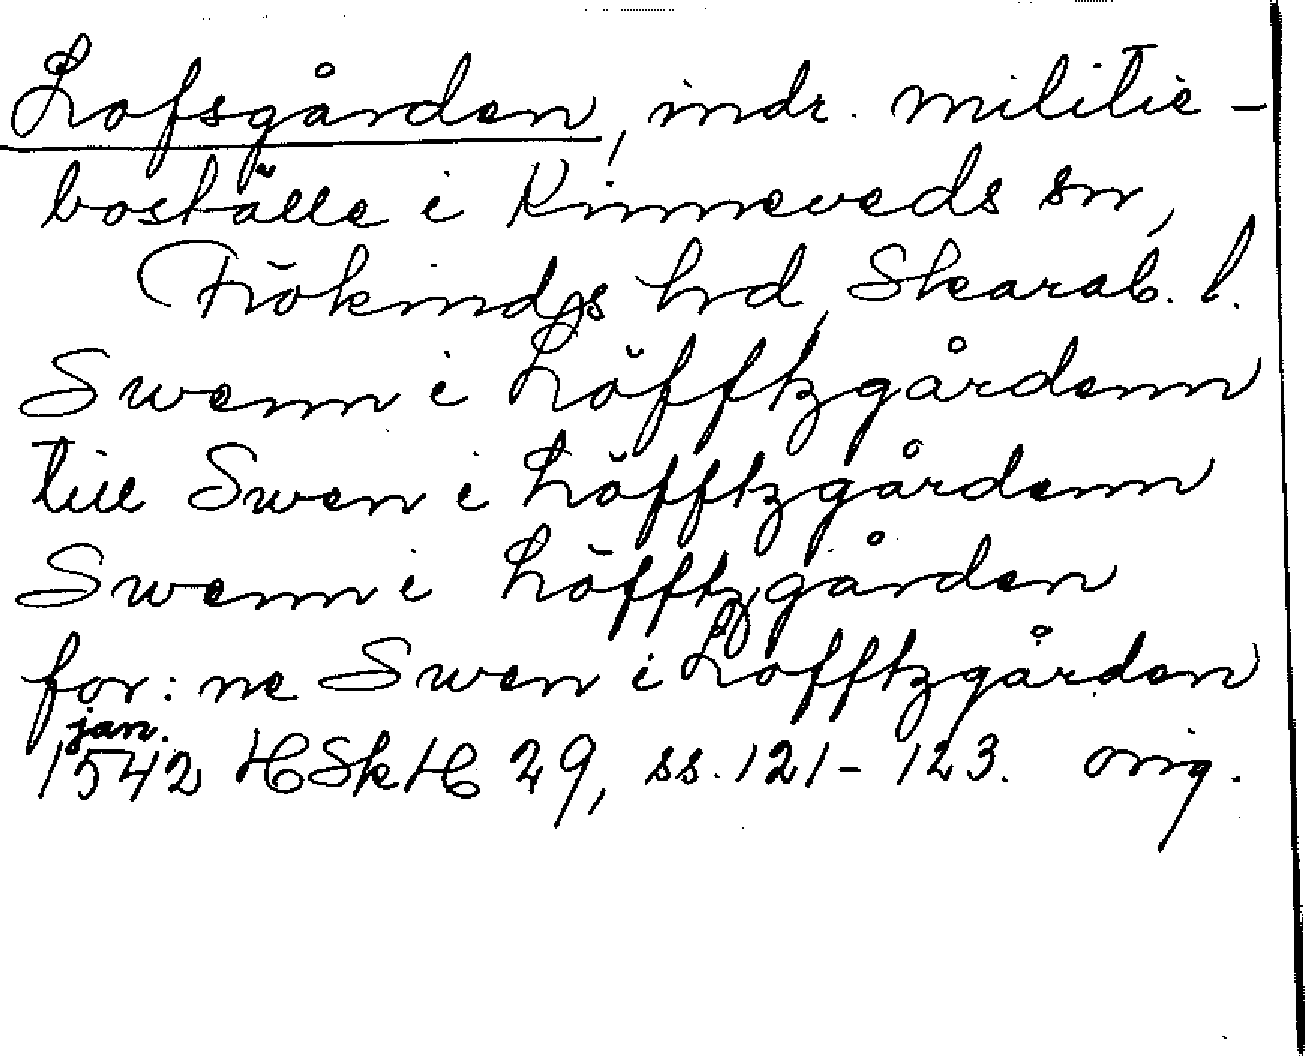 Lofsgården, indr. militie-
boställe i Kinneveds sn,
Frökinds hrd, Skarab. l.
Swenn i Löfftzgårdenn
till Swen i Löfftzgårdenn
Swenn i Löfftzgården
for: ne Swen i Lofftzgården
jan.
1542 HSkH 29, ss. 121-123. orig.